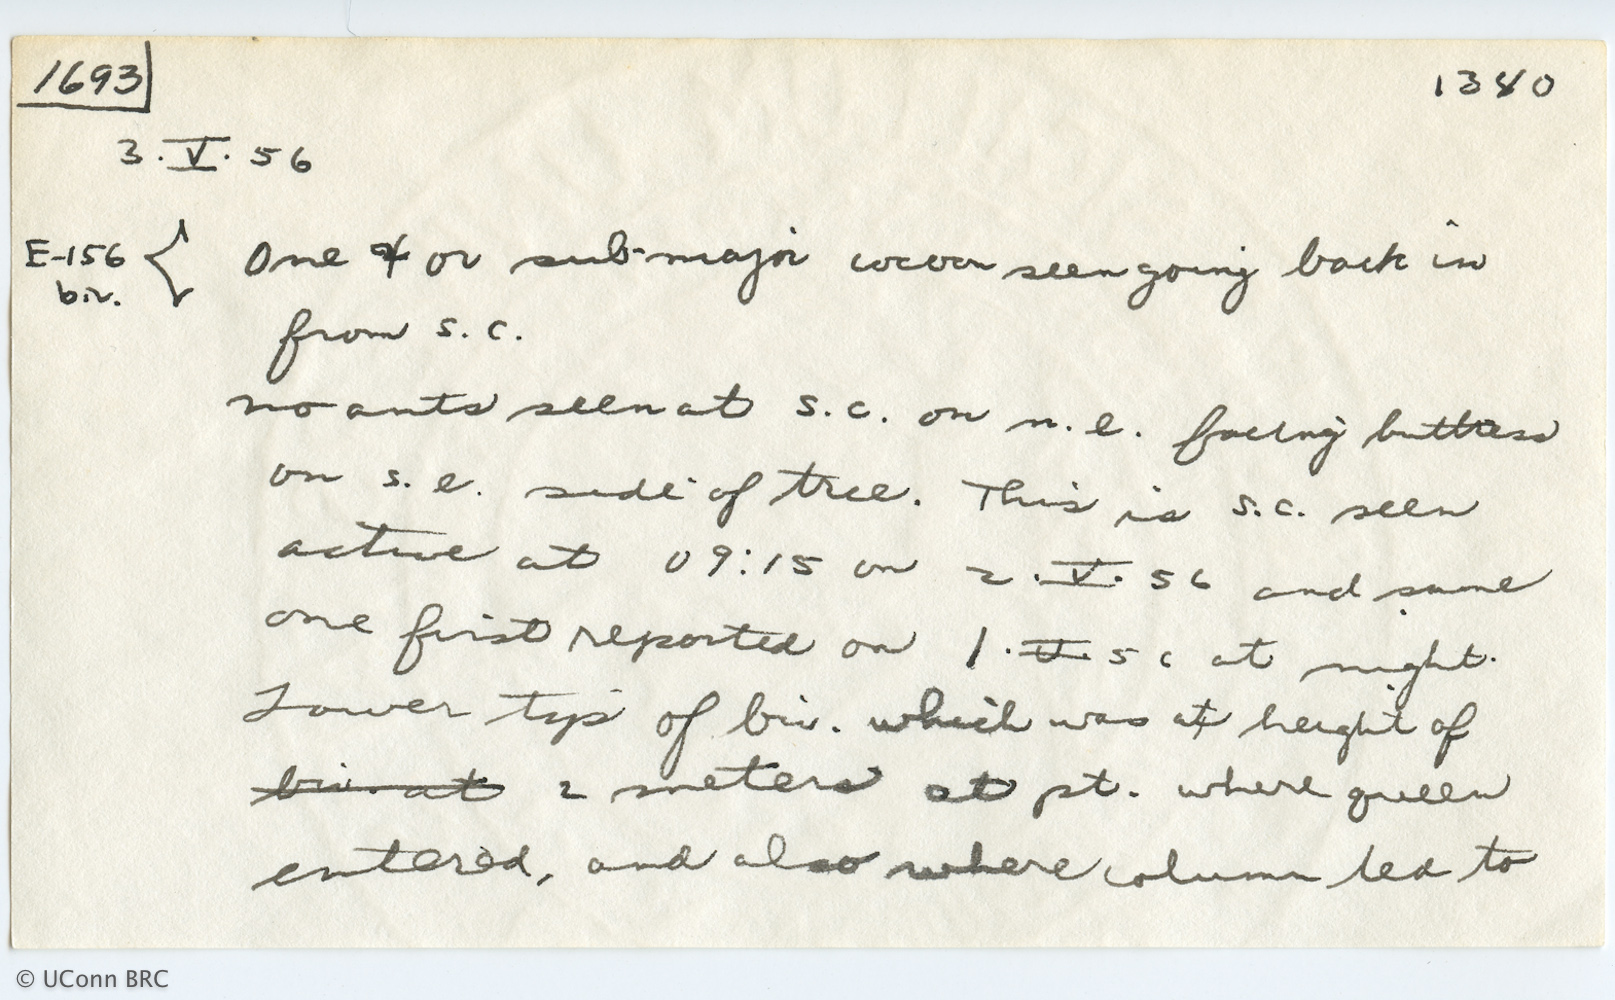 1693
1340
3.V.56
E-156 biv.
One 4 or sub-major cocoon seen going back in
from s.c.
no ants seen at s.c. on n.e. facing buttress
on s.e. side of tree. This is s.c. seen
active at 09:15 on 2.V.56 and same
one first reported on 1.V.56 at night.
Lower tip of biv. which was at height of
biv. at 2 meters at pt. where queen
entered, and also where column led to
© UConn BRC